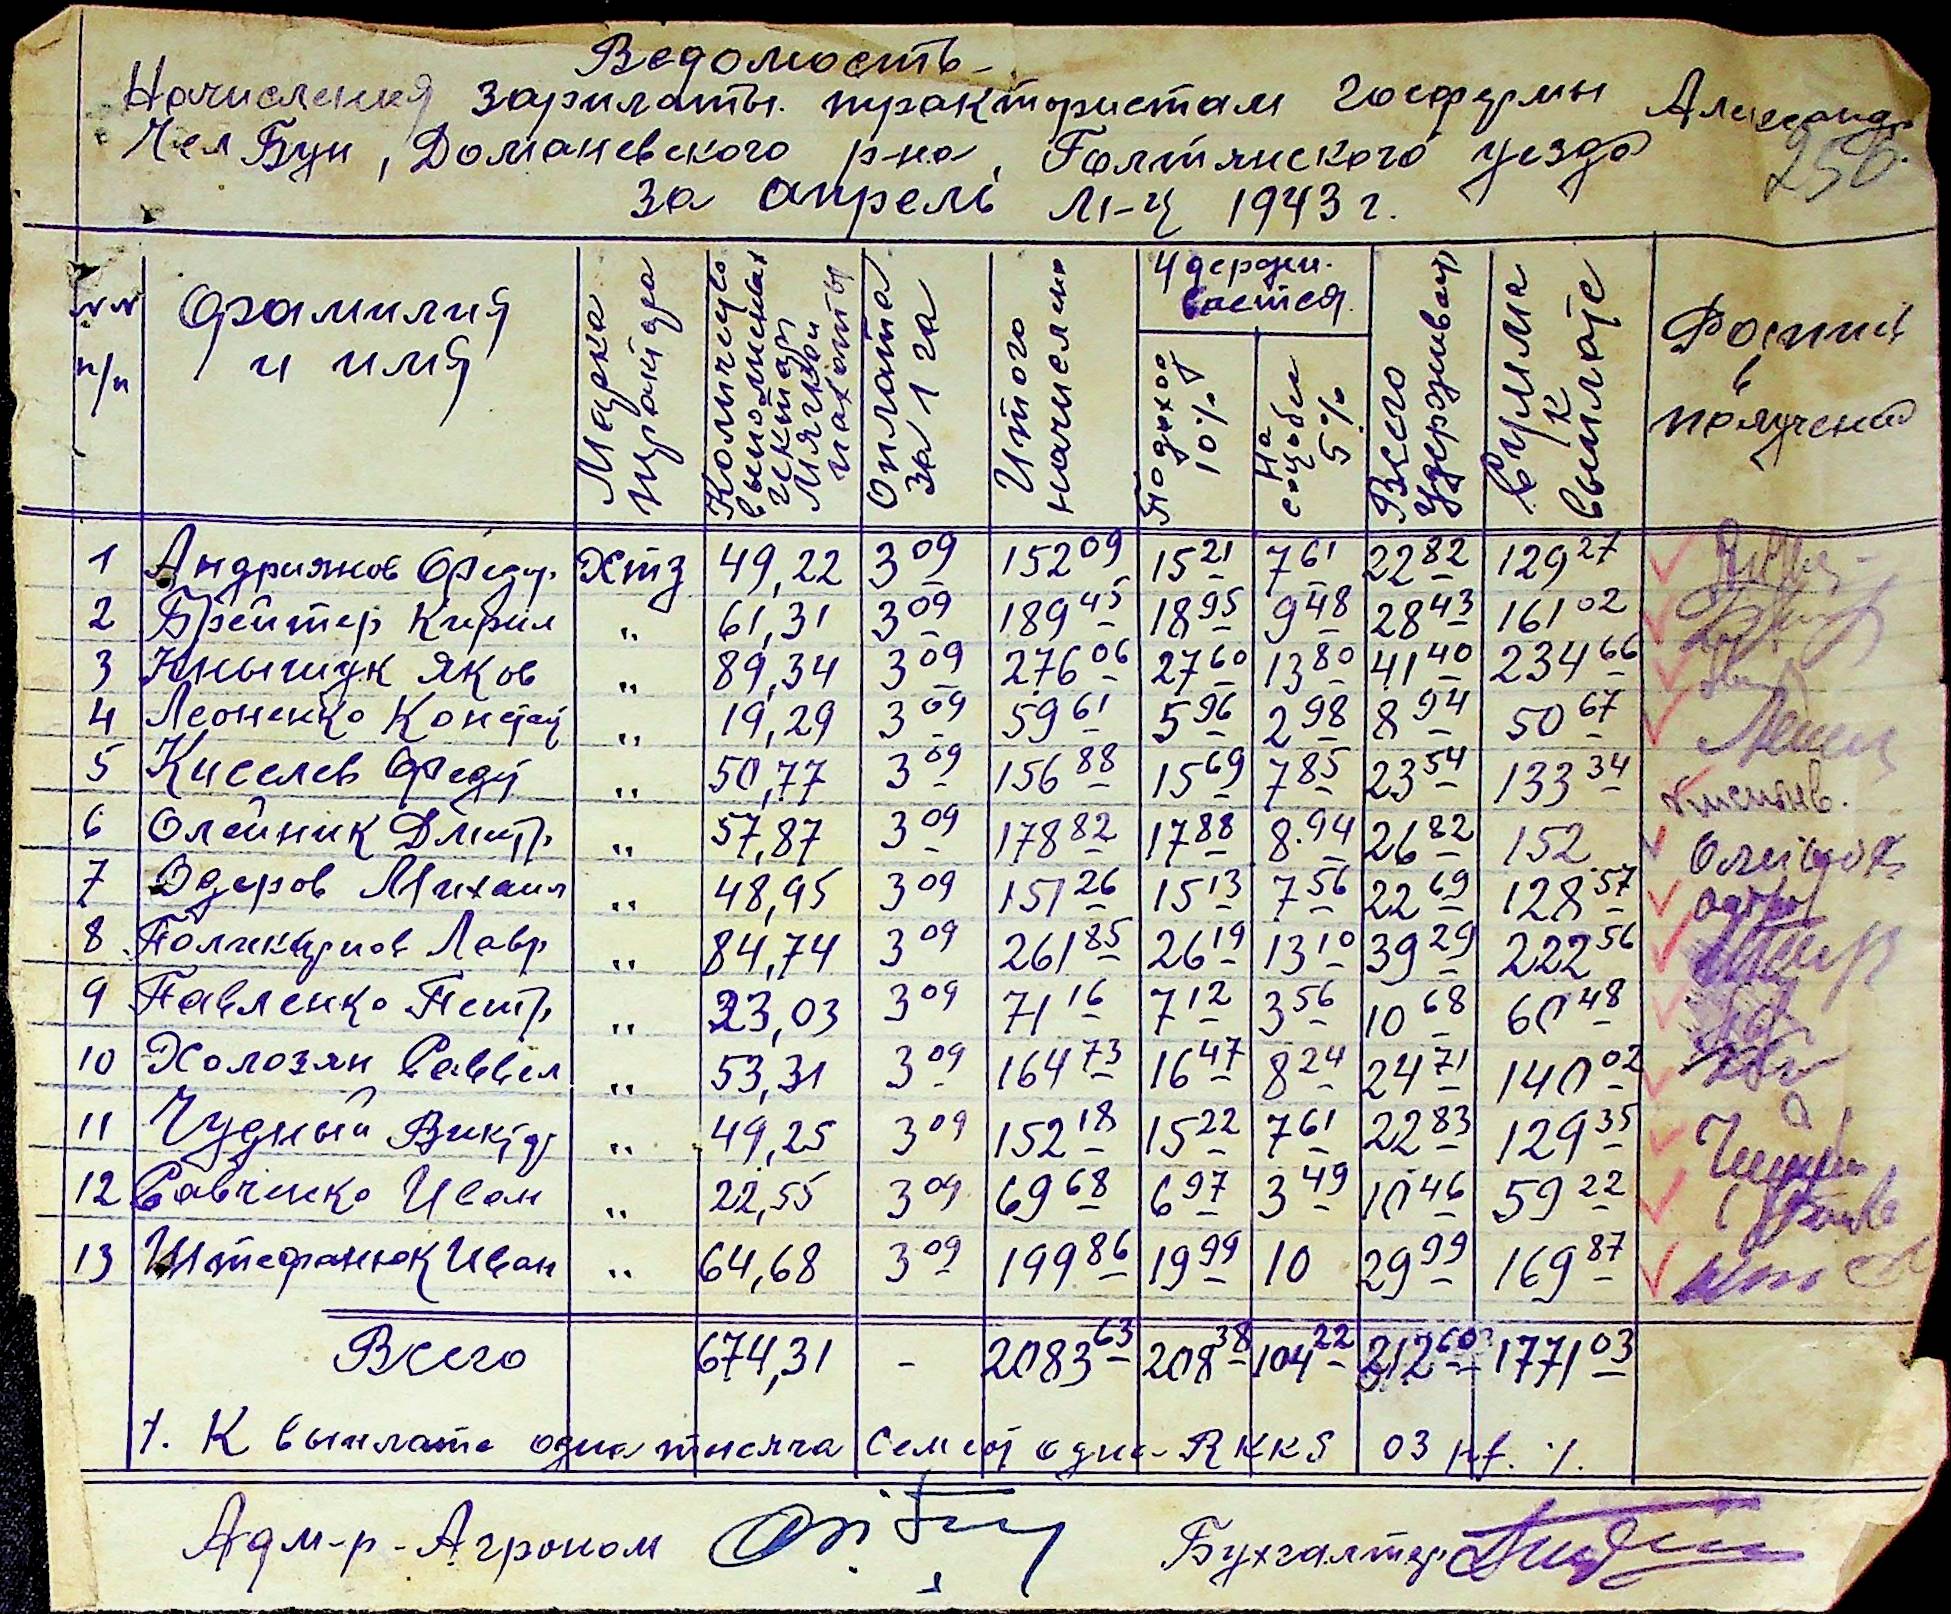 Ведомость
Начисления зарплаты трактористам госфермы Александр
Чел Бун, Доманевского р-на, Голтянского уезда
250
за апрель м-ц 1943 г.
NN п/п | Фамилия и имя | Марка трактора | Количество выполненных гектар мягкой пахоты | Оплата за 1 га | Итого начислено | Удерживается: Подоход 10% | На соцобес 5% | Всего удерживать | Сумма к выплате | Роспись в получении
1 Андриянов Федор Хтз 49,22 3 09 152 09 15 21 7 61 22 82 129 27
2 Брейтер Кирил „ 61,31 3 09 189 45 18 95 9 48 28 43 161 02
3 Кнышук Яков „ 89,34 3 09 276 06 27 60 13 80 41 40 234 66
4 Леоненко Констан „ 19,29 3 09 59 61 5 96 2 98 8 94 50 67
5 Киселев Федор „ 50,77 3 09 156 88 15 69 7 85 23 54 133 34
6 Олейник Дмитр. „ 57,87 3 09 178 82 17 88 8.94 26 82 152
7 Одеров Михаил „ 48,95 3 09 151 26 15 13 7 56 22 69 128 57
8 Поликарпов Лавр „ 84,74 3 09 261 85 26 19 13 10 39 29 222 56
9 Павленко Петр. „ 23,03 3 09 71 16 7 12 3 56 10 68 60 48
10 Холозян Саввел „ 53,31 3 09 164 73 16 47 8 24 24 71 140 02
11 Чудный Виктор „ 49,25 3 09 152 18 15 22 7 61 22 83 129 35
12 Савченко Иван „ 22,55 3 09 69 68 6 97 3 49 10 46 59 22
13 Штефанюк Иван „ 64,68 3 09 199 86 19 99 10 29 99 169 87
Всего 674,31 - 2083 63 208 38 104 22 212 60 1771 03
1. К выплате одна тысяча семсот одна RKKS 03 pf. 1.
Адм-р-Агроном Бухгалтер